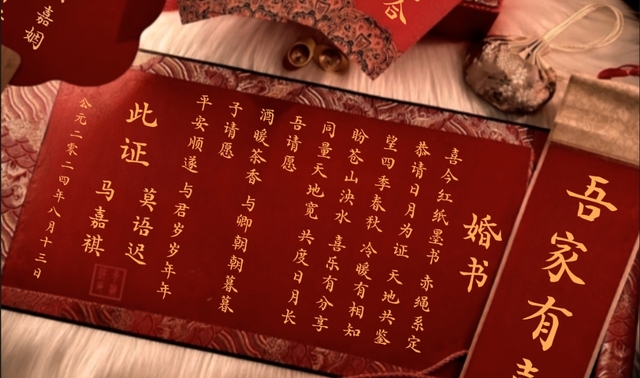 婚书
喜今红纸墨书 赤绳系定
恭请日月为证 天地共鉴
望四季春秋 冷暖有相知
盼苍山泱水 喜乐有分享
同量天地宽 共度日月长
吾请愿
酒暖茶香 与卿朝朝暮暮
子请愿
平安顺遂 与君岁岁年年
此证
莫语迟
马嘉祺
公元二零二四年八月十三日
吾家有喜
嘉娴
合